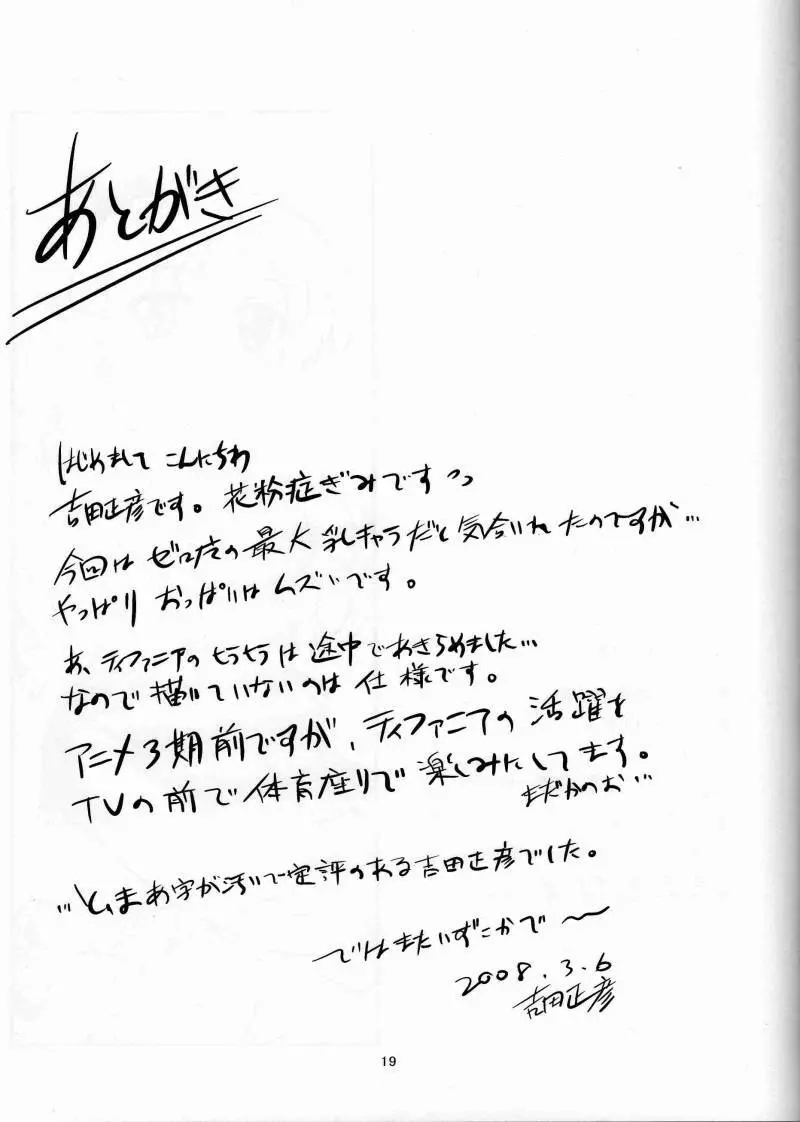 あとがき
はじめまして こんにちわ
吉田正彦です。花粉症ぎみです
今回は ゼロ魔の最大乳キャラだと気合いれたのですが…
やっぱり おっぱいは ムズいです。
あ、ティファニアのヒラヒラは途中であきらめました…
なので描いていないのは仕様です。
アニメ3期前ですが、ティファニアの活躍を
TVの前で体育座りで楽しみにしてます。
まだかのお…
…と、まあ字が汚いで定評のある吉田正彦でした。
ではまたいずこかで〜
2008.3.6
吉田正彦
19